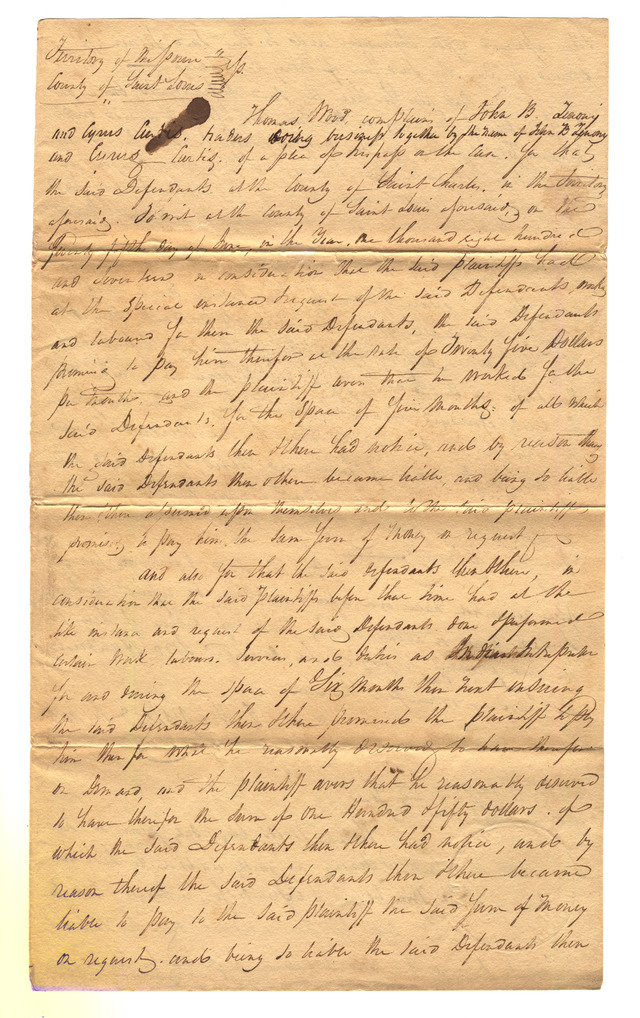 Territory of Missouri
County of Saint Louis } Ss.
Thomas Wood, complains of John B
and Cyrus Curtis, traders doing business together by the name of John B
and Cyrus Curtis. of a plea of trespass on the case. For that
the said Defendants at the County of Saint Charles. in the Territory
aforesaid. Towit at the county of Saint Louis aforesaid, on the
Twenty fifth day of June, in the Year, one thousand eight hundred
and seventeen in consideration that the said plaintiff had
at the Special instance & request of the said Defendants, worked
and laboured for them the said Defendants, the said Defendants
promised to pay him therefor at the rate of Twenty five Dollars
per month. and the plaintiff avers that he worked for the
said Defendants. for the space of Five Months. of all which
the said Defendants then & there had notice, and by reason
the said Defendants then & there became liable, and being so liable
then & there assumed upon themselves and to the said plaintiff
promised to pay him the same Sum of Money on request
and also for that the said defendants then & there, in
consideration that the said Plaintiff before that time had at the
like instance and request of the said Defendants done & performed
certain work labour. Services, and duties as Indian Interpreter
for and during the space of Six Months then next ensuing
the said Defendants then & there promised the plaintiff to pay
him therefor what he reasonably deserved to have therefor
on Demand, and the plaintiff avers that he reasonably deserved
to have therefor the sum of one Hundred & fifty dollars. of
which the said Defendants then & there had notice, and by
reason thereof the said Defendants then & there became
liable to pay to the said plaintiff the said Sum of Money
on request. and being so liable the said Defendants then